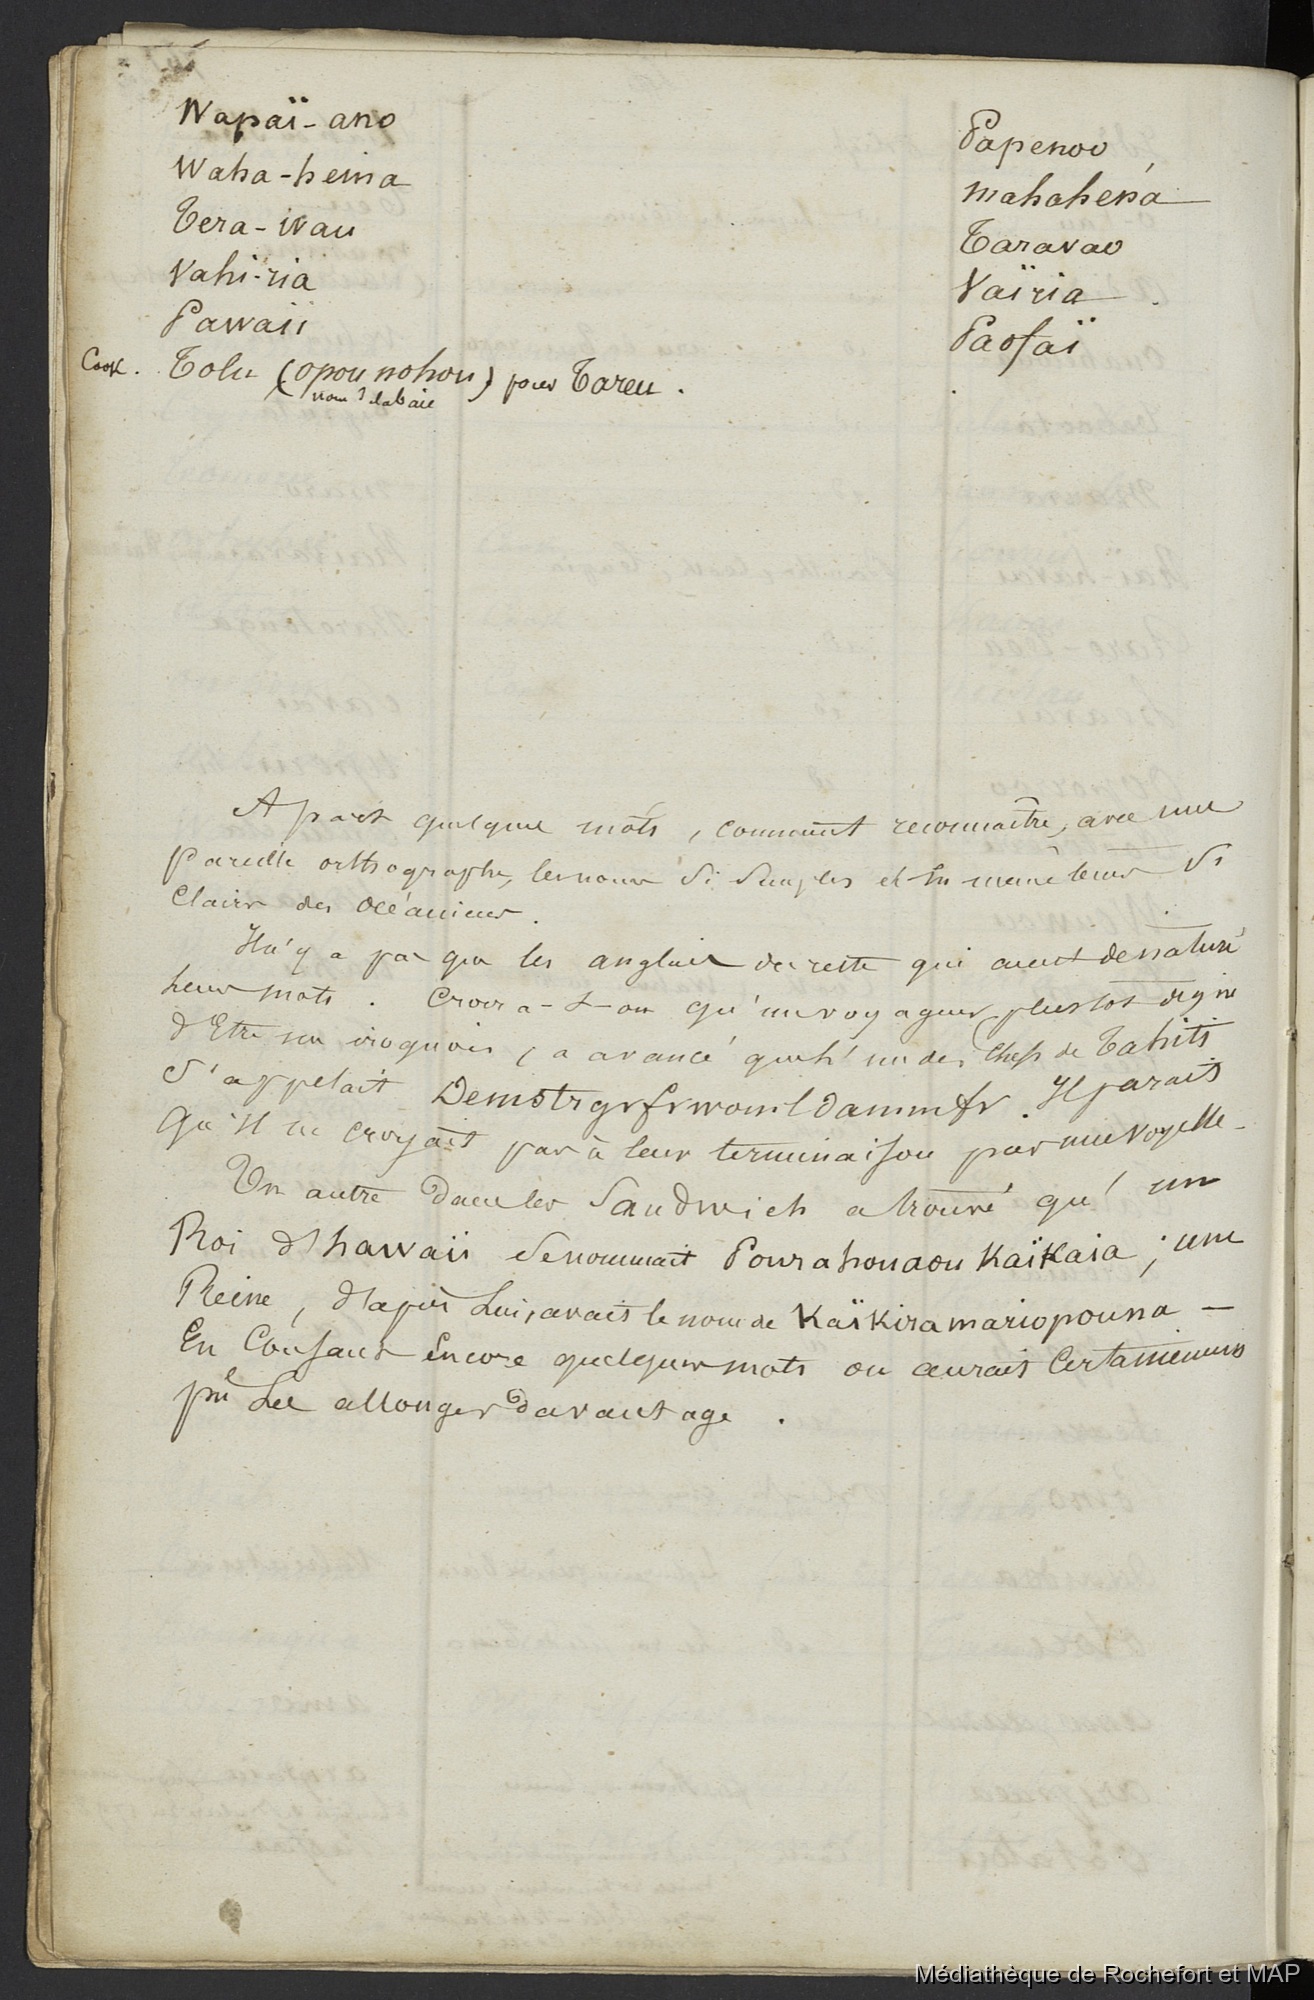 Wapaï-ano Papenoo
Waha-heina mahahena
Tera-wau Taravao
Vahi-ria Vaïria
Pawaii Paofaï
Cook. Tolu (opou nohou) pour Tareu.
nom d labaie
A part quelques mots, comment reconnaître, avec une
pareille orthographe, les noms si simples et en même tems si
clairs des océaniens.
Il n'y a pas que les anglais du reste qui aient dénaturé
leurs mots. Croira-t-on qu'un voyageur plustot digne
d'Etre un iroquois, a avancé qu'un des chefs de Tahiti
s'appelait Demstrgrfrwomldammfr. Il parait
qu'il ne croyait pas à leur terminaison par une voyelle.
Un autre dans les Sandwich a trouvé qu'un
Roi d'hawaii se nommait Pourahouaou Kaïkaia; une
Reine, d'après Lui, avait le nom de Kaïkiramariopouna –
En Cousant Encore quelques mots on aurait Certainement
pu les allonger davantage.
Médiathèque de Rochefort et MAP